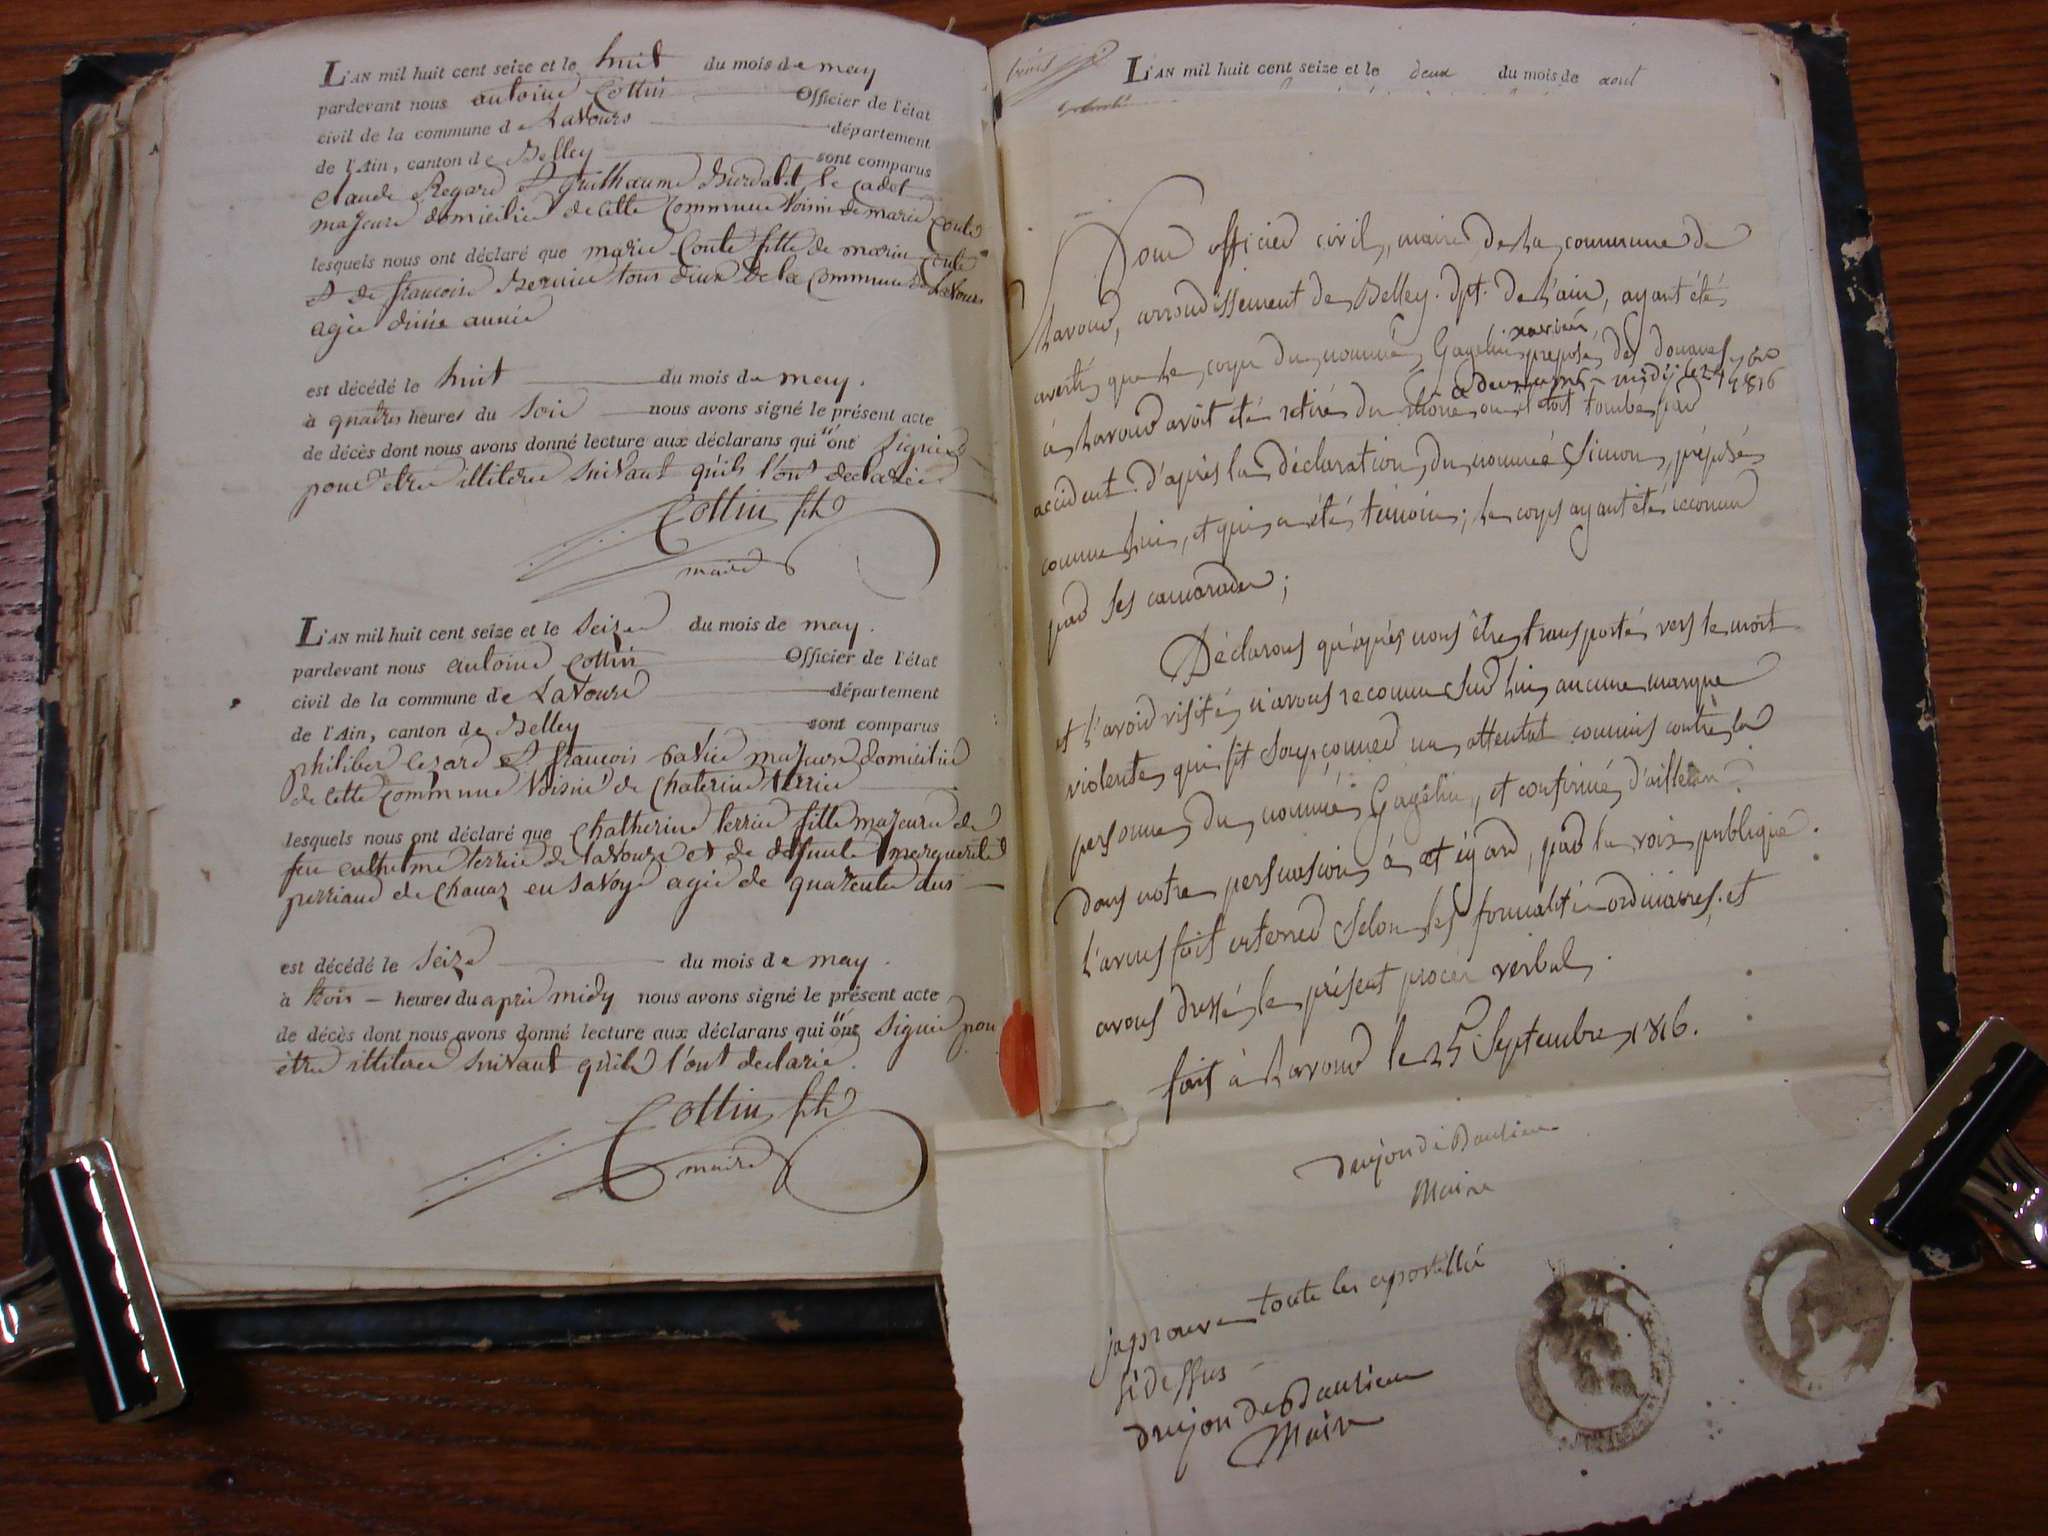 L'AN mil huit cent seize et le huit du mois de may
pardevant nous antoine Cottin Officier de l'état
civil de la commune de Lavours département
de l'Ain, canton de Belley sont comparus
claude Regard et Guilhaume le cadet
majeure domicilié de cette commune voisin de marie Conte
lesquels nous ont déclaré que marie Conte fille de marin Conte
et de françoise tous deux de la commune de Lavours
agée d'une année
est décédé le huit du mois de may.
à quatres heures du soir nous avons signé le présent acte
de décès dont nous avons donné lecture aux déclarans qui n'ont signié
pour etre illitere suivant quils l'ont declarée
Cottin fils
maire
L'AN mil huit cent seize et le seize du mois de may.
pardevant nous antoine Cottin Officier de l'état
civil de la commune de Lavours département
de l'Ain, canton de Belley sont comparus
philiber cezard et françois majeure domicilié
de cette commune voisine de Chaterine terrier
lesquels nous ont déclaré que Chatherine terrier fille majeure de
feu terrier de lavours et de defunte
perriand de Chanaz en Savoye agée de quarente ans
est décédé le seize du mois de may.
à trois heures du apré midy nous avons signé le présent acte
de décès dont nous avons donné lecture aux déclarans qui n'ont signié pour
etre illiteree suivant quile l'ont declarie.
Cottin fils
maire
L'AN mil huit cent seize et le deux du mois de aout
officier civil, maire de la commune de
Lavour, arrondissement de Belley. dpt. de l'ain, ayant été
averti que le corps du nommé Gagelin xavier, préposé des douanes
à Lavour avoit été retiré du rhône où il étoit tombé par
1816
accident d'après la déclaration du nommé Simon, préposé
comme lui, et qui a été témoin; le corps ayant été reconnu
par ses camarades;
Déclarons qu'après nous être transporté vers le mort
et l'avoir visité, n'avons reconnu sur lui aucune marque
violente, qui fit soupçonner un attentat commis contre la
personne du nommé Gagelin, et confirmé d'ailleurs
dans notre persuasion à cet égard, par la voix publique.
l'avons fait enterrer selon les formalités ordinaires, et
avons dressé le présent procès verbal.
fait à Lavour le 25 Septembre 1816.
dujon de Baulieu
Maire
japrouve toute les apostillé
si dessus
drujon de Baulieu
Maire